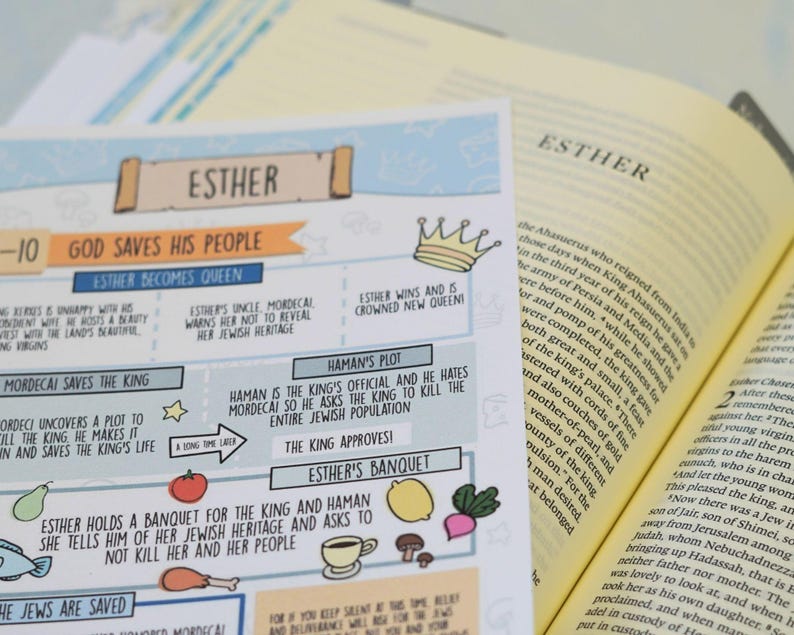 ESTHER
-10 GOD SAVES HIS PEOPLE
ESTHER BECOMES QUEEN
NG XERXES IS UNHAPPY WITH HIS
OBEDIENT WIFE. HE HOSTS A BEAUTY
TEST WITH THE LAND'S BEAUTIFUL,
NG VIRGINS
ESTHER'S UNCLE, MORDECAI,
WARNS HER NOT TO REVEAL
HER JEWISH HERITAGE
ESTHER WINS AND IS
CROWNED NEW QUEEN!
MORDECAI SAVES THE KING
ORDECI UNCOVERS A PLOT TO
KILL THE KING, HE MAKES IT
N AND SAVES THE KING'S LIFE
A LONG TIME LATER
HAMAN'S PLOT
HAMAN IS THE KING'S OFFICIAL AND HE HATES
MORDECAI SO HE ASKS THE KING TO KILL THE
ENTIRE JEWISH POPULATION
THE KING APPROVES!
ESTHER'S BANQUET
ESTHER HOLDS A BANQUET FOR THE KING AND HAMAN
SHE TELLS HIM OF HER JEWISH HERITAGE AND ASKS TO
NOT KILL HER AND HER PEOPLE
HE JEWS ARE SAVED
HONORED MORDECAI
FOR IF YOU KEEP SILENT AT THIS TIME, RELIEF
AND DELIVERANCE WILL RISE FOR THE JEWS
ESTHER
the Ahasuerus who reigned from India to
those days when King Ahasuerus sat on
in the third year of his reign he gave a
he army of Persia and Media and the
were before him, 4 while he showed
or and pomp of his greatness for
were completed, the king gave
both great and small, a feast
of the king's palace. 6 There
astened with cords of fine
and also couches of gold
mother-of-pearl, and
vessels of different
ounty of the king.
pulsion." For the
h man desired.
at belonged
he
Esther Chosen
2 After these
remembered
against her. 2 The
tiful young virgin
officers in all the pro
virgins to the harem
eunuch, who is in char
4 And let the young wom
This pleased the king, and
5 Now there was a Jew i
son of Jair, son of Shimei, so
away from Jerusalem among
Judah, whom Nebuchadnezza
bringing up Hadassah, that is E
neither father nor mother. The
was lovely to look at, and when
took her as his own daughter. 8 S
proclaimed, and when many
adel in custody of He
put in custod